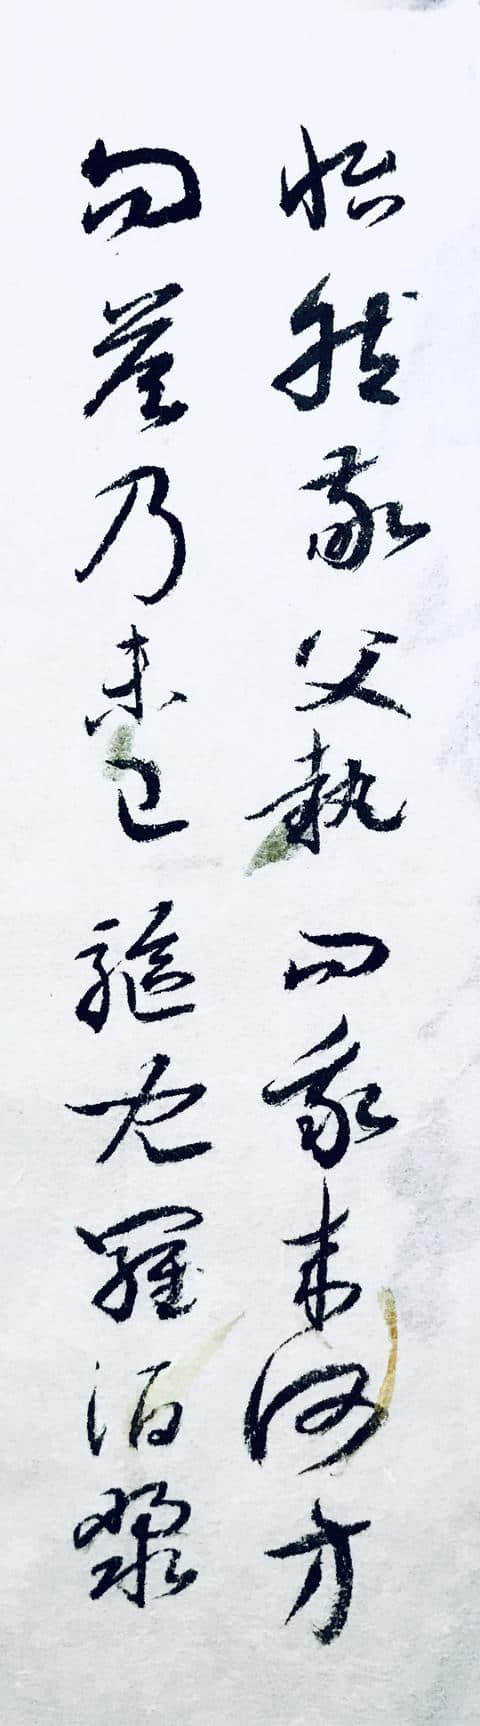 怡然敬父執問我來何方
問答乃未已驅兒羅酒漿